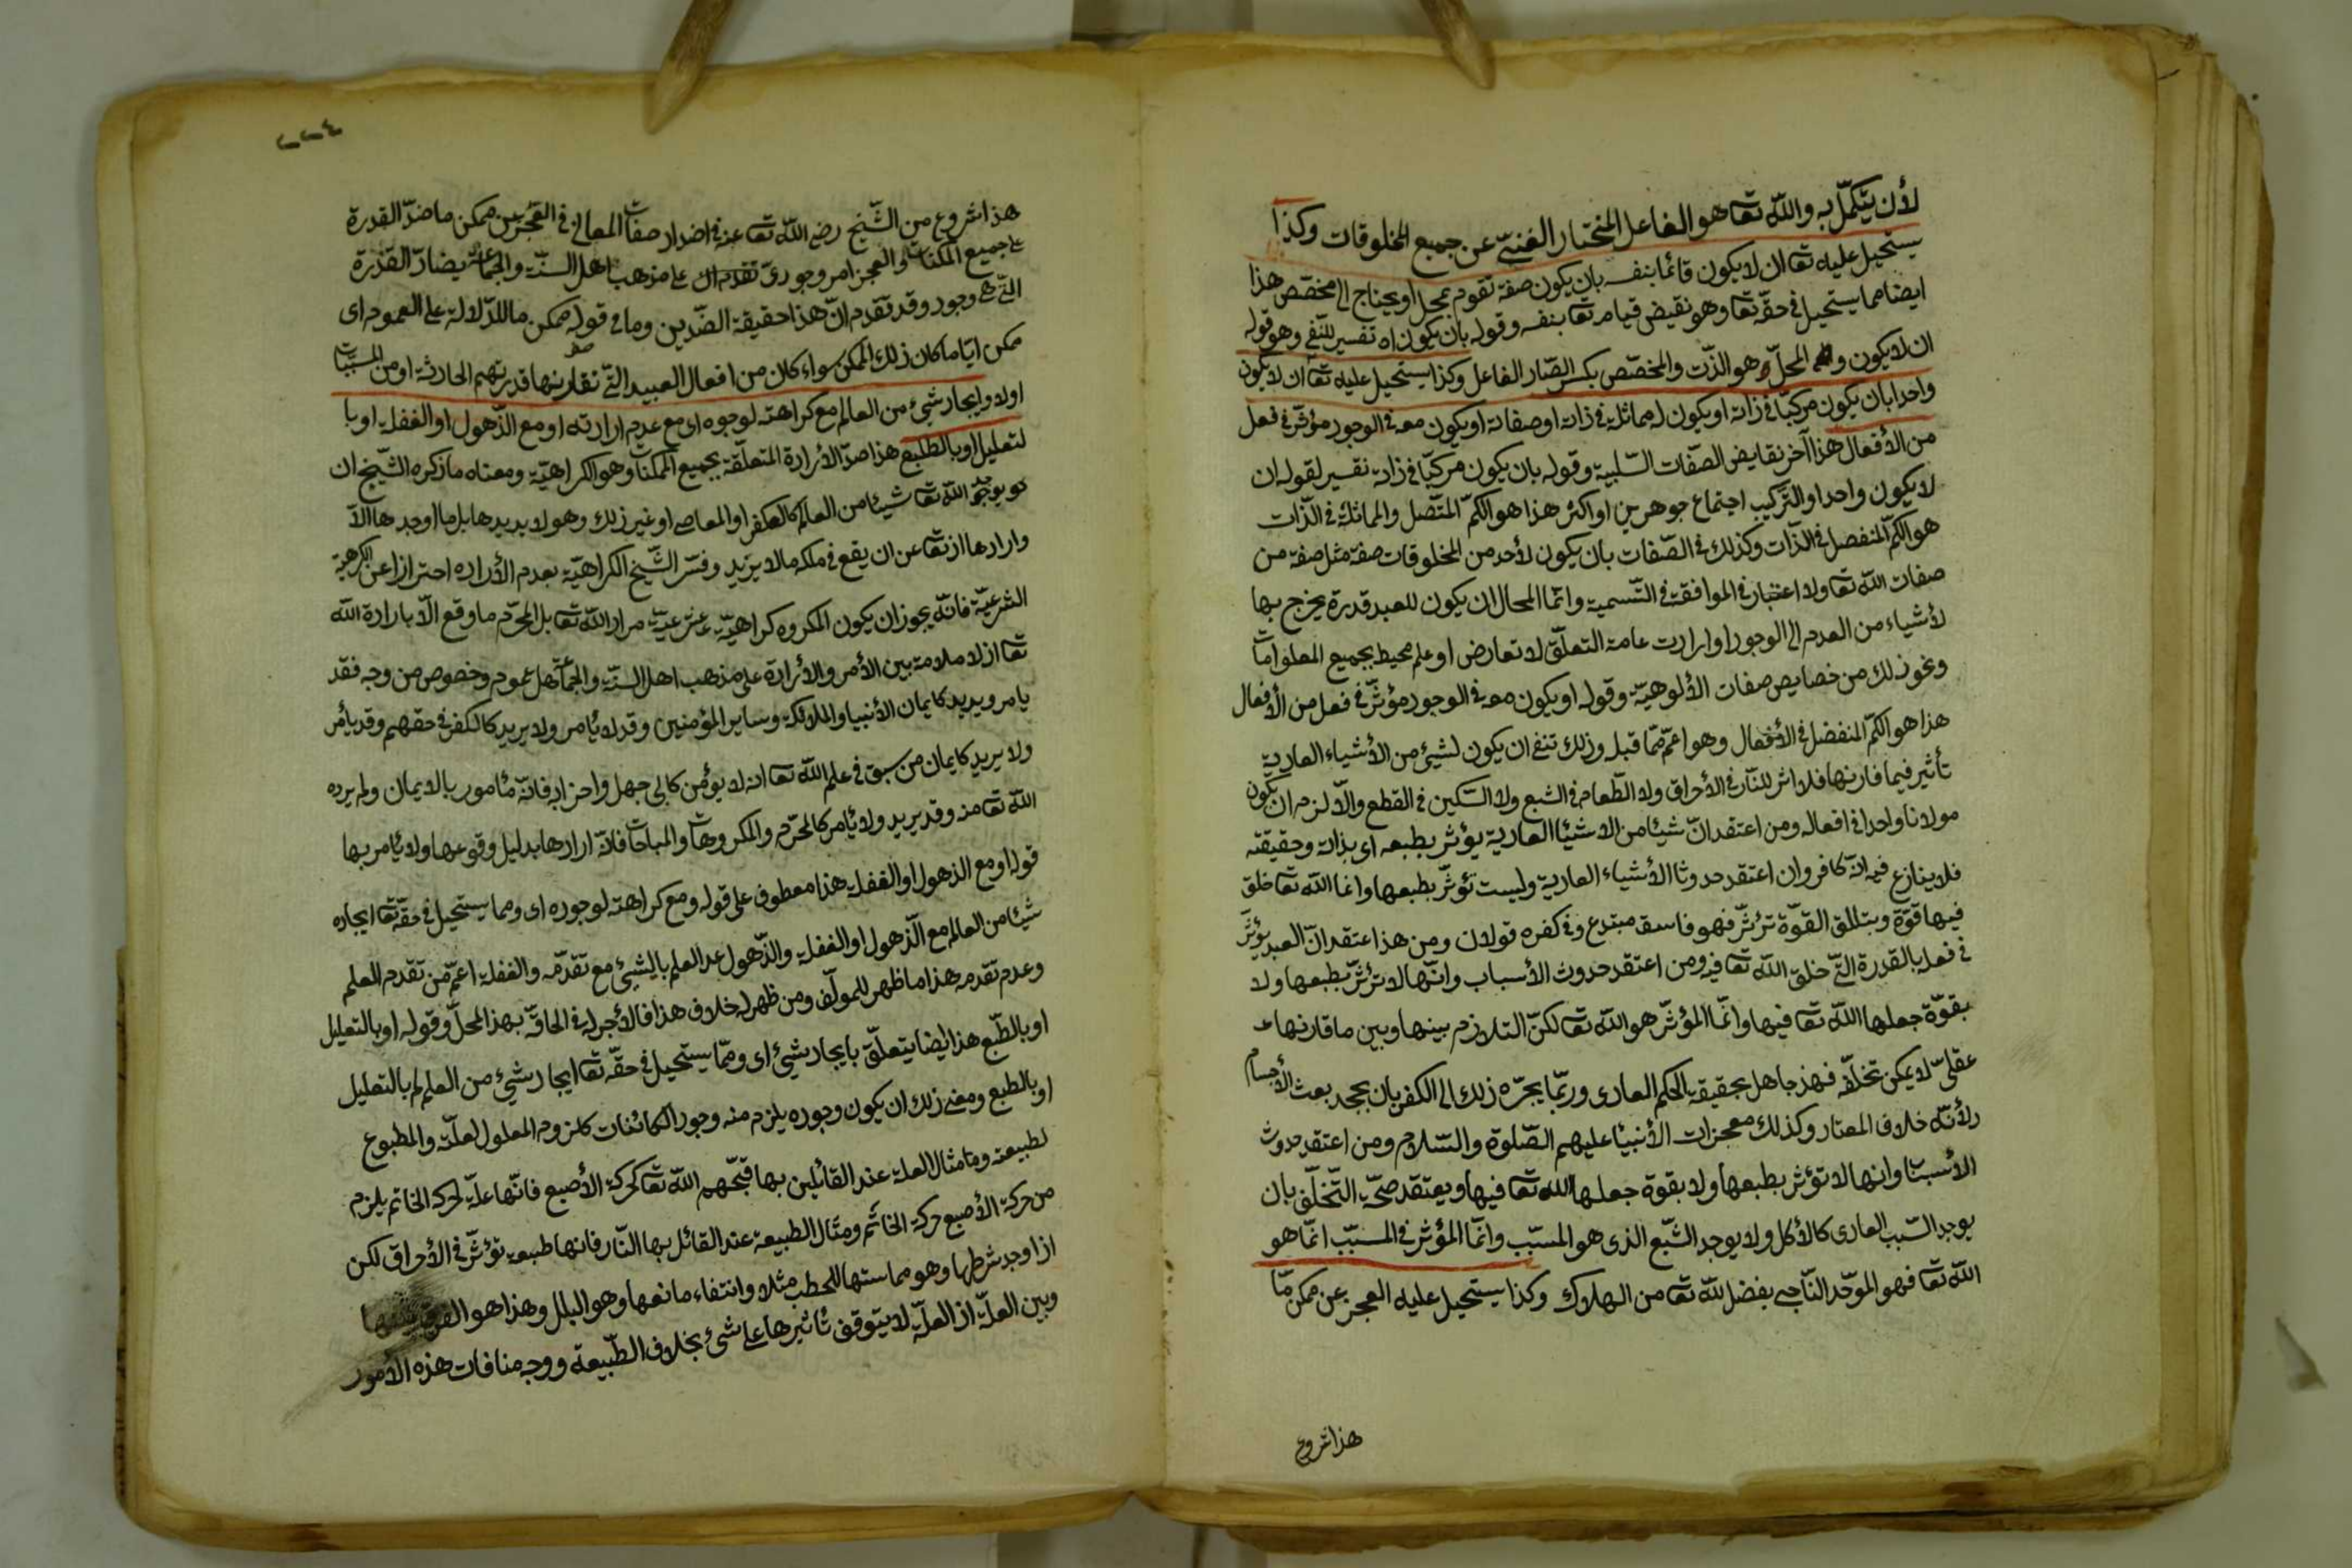 لأن يتكمل به والله تعا هو الفاعل المختار الغنيّ عن جميع المخلوقات وكذا
يستحيل عليه تعا ان لا يكون قائما بنفسه بان يكون صفة تقوم بمحل او يحتاج الى مخصّص هذا
ايضا مما يستحيل فى حقّه تعا وهو نقيض قيامه تعا بنفسه وقوله بان يكون اه تفسير للنّفي وهو قوله
ان لا يكون والمحلّ هو الذّت والمخصّص بكسر الصّاد الفاعل وكذا يستحيل عليه تعا ان لا يكون
واحدا بان يكون مركبّا فى ذاته او يكون له مماثلة فى ذاته او صفاته او يكون معه فى الوجود مؤثّر فى فعل
من الأفعال هذا آخر نقايض الصّفات السّلبية وقوله بان يكون مركبّا فى ذاته تفسير لقوله ان
لا يكون واحدا والتّركيب اجتماع جوهرين او اكثر هذا هو الكمّ المتّصل والمماثلة فى الذّات
هو الكمّ المنفصل فى الذّات وكذلك فى الصّفات بان يكون لأحد من المخلوقات صفة مثل صفة من
صفات الله تعا ولا اعتبار فى الموافقة فى التّسمية وانّما المحال ان يكون للعبد قدرة يخرج بها
لأشياء من العدم الى الوجود او ارادت عامة التعلّق لا تعارض او علم محيط بجميع المعلومات
ونحو ذلك من خصايص صفات الألوهيّة وقوله او يكون معه فى الوجود مؤثّر فى فعل من الأفعال
هذا هو الكمّ المنفصل فى الأفعال وهو اعمّ ممّا قبله وذلك تنفى ان يكون لشيئ من الأشياء العادية
تأثير فيما قارنها فلا اثر للنّار فى الأحراق ولا الطّعام فى الشبع ولا السّكين فى القطع والّا لزم ان يكون
مولانا واحدا فى افعاله ومن اعتقد انّ شيئا من الاشئيا العادية يؤثر بطبعه اى بذاته وحقيقته
فلا ينازع فيه انّه كافر وان اعتقد حدوثا الأشياء العادية وليست تؤثّر بطبعها وانما الله تعا خلق
فيها قوّة وبتللق القوّة تؤثّر فهو فاسق مبتدع وفى كفره قولان ومن هذا اعتقد انّ العبد يؤثّر
فى فعله بالقدرة التّى خلق الله تعا فيه ومن اعتقد حدوث الأسباب وانّها لا تؤثّر بطبعها ولا
بقوّة جعلها الله تعا فيها وانّما المؤثّر هو الله تعا لكنّ التلازم بينها وبين ما قارنها
عقليّ لا يمكن تخلّفه فهذ جاهل بحقيقة الحكم العادى وربّما يجرّه ذلك الى الكفر بان يجحد بعث الأجسام
لأنّه خلاف المعتار وكذلك معجزات الأنبيا عليهم الصّلوة والسّلام ومن اعتقد حدوث
الأسبا وانها لا تؤثر بطبعها ولا بقوة جعلها الله تعا فيها ويعتقد صحّة التّخلّف بان
يوجد السّبب العادى كالأكل ولا يوجد الشّبع الذى هو المسبّب وانّما المؤثر فى المسبّب انّما هو
الله تعا فهو الموحّد النّاجى بفضل لله تعا من الهلاك وكذا يستحيل عليه العجز عن ممكن مّا
هذا شروع
٢٢٤
هذا شروع من الشّيخ رضى الله تعا عنه فى اضداد صفات المعانى فى العجز عن ممكن ما ضدّ القدرة
على جميع الممكنات والعجز امر وجودىّ تقدم ان على مذهب اهل السنّة والجماعة يضادّ القدرة
التّى هى وجود وقد تقدم انّ هذا حقيقة الضّدين وما فى قوله ممكن ما للدّلالة على العموم اى
ممكن ايّا ما كان ذلك الممكن سواء كان من افعال العبيد التّى تقارنها قدرتهم الحادثة او من المسببّات
اولا وايجاد شيئ من العالم مع كراهته لوجوده اى مع عدم ارادته او مع الذّهول او الغفلة او با
لتعليل او بالطبع هذا ضدّ الأرادة المتعلّقة بجميع الممكنا وهو الكراهيّة ومعناه ما ذكره الشّيخ ان
لا يوجد الله تعا شيئا من العالم كالكفر او المعاصى او غير ذلك وهو لا يديدها بل ما اوجدها الّا
وارادها اذ تعا عن ان يقع فى ملكه ما لا يريد وفسّر الشّيخ الكراهيّة بعدم الأراده احترازا عن الكراهية
الشرعيّة فانّه يجوز ان يكون المكروه كراهيّة شرعيّة مراد الله تعا بل المحرّم ما وقع الّا بارادة الله
تعا اذ لا ملامة بين الأمر والأرادة على مذهب اهل السنّة والجماعة بل عموم وخصوص من وجه فقد
يامر ويديد كايمان الأنبيا والملائكة وساير المؤمنين وقد لا يأمر ولا يريد كالكفر فى حقهم وقد يأمر
ولا يريد كايمان من سبق فى علم الله تعا انه لا يؤمن كابى جهل واحزابه فانّه مأمور بالايمان ولم يرده
الله تعا منه وقد يريد ولا يأمر كالمحرّم والمكروهات والمباحات فانّه ارادها بدليل وقوعها ولا يأمر بها
قوله او مع الذهول او الغفلة هذا معطوف على قوله ومع كراهته لوجوده اى ومما يستحيل فى حقّه تعا ايجاده
شيئا من العالم مع الذّهول او الغفلة والذّهول عد العلم بالشيئ مع تقدّمه والغفلة اعمّ من تقدم العلم
وعدم تقدمه هذا ما ظهر للمولّف ومن ظهر له خلاف هذا فالأجر له فى الحاقّه بهذا المحلّ وقوله او بالتعليل
او بالطّبع هذا ايضا يتعلّق بايجاد شيئ اى وممّا يستحيل فى حقّه تعا ايجاد شيئ من العلم بالتعليل
او بالطبع ومعنى ذلك ان يكون وجوده يلزم منه وجود الكائنات كلزوم المعلول لعلّة والمطبوع
لطبيعته وما مثال العلة عند القائلين بها قبّحهم الله تعا كحركة الأصبع فانّها علّة لحركة الخاتم يلزم
من حركة الأصبع حركة الخاتم ومثال الطبيعة عند القائل بها النّار فانها طبيعة تؤثّر فى الأحراق لكن
اذا وجد شرطها وهو مماستها للحطب مثلا وانتفاء مانعها وهو البلل وهذا هو الفرق بينها
وبين العلّة اذ العلّة لا يتوقف تأثيرها على شئ بخلاف الطّبيعة ووجه منافات هذه الأمور